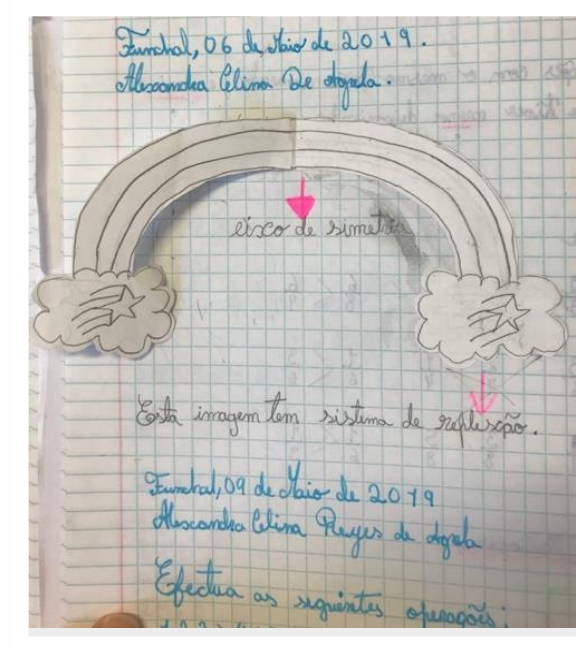 Funchal, 06 de Maio de 2019.
Alexandra Celina De Agrela.
eixo de simetria
Esta imagem tem sistema de reflexção.
Funchal, 09 de Maio de 2019
Alexandra Celina Reyes de Agrela
Efectua as seguintes operações: